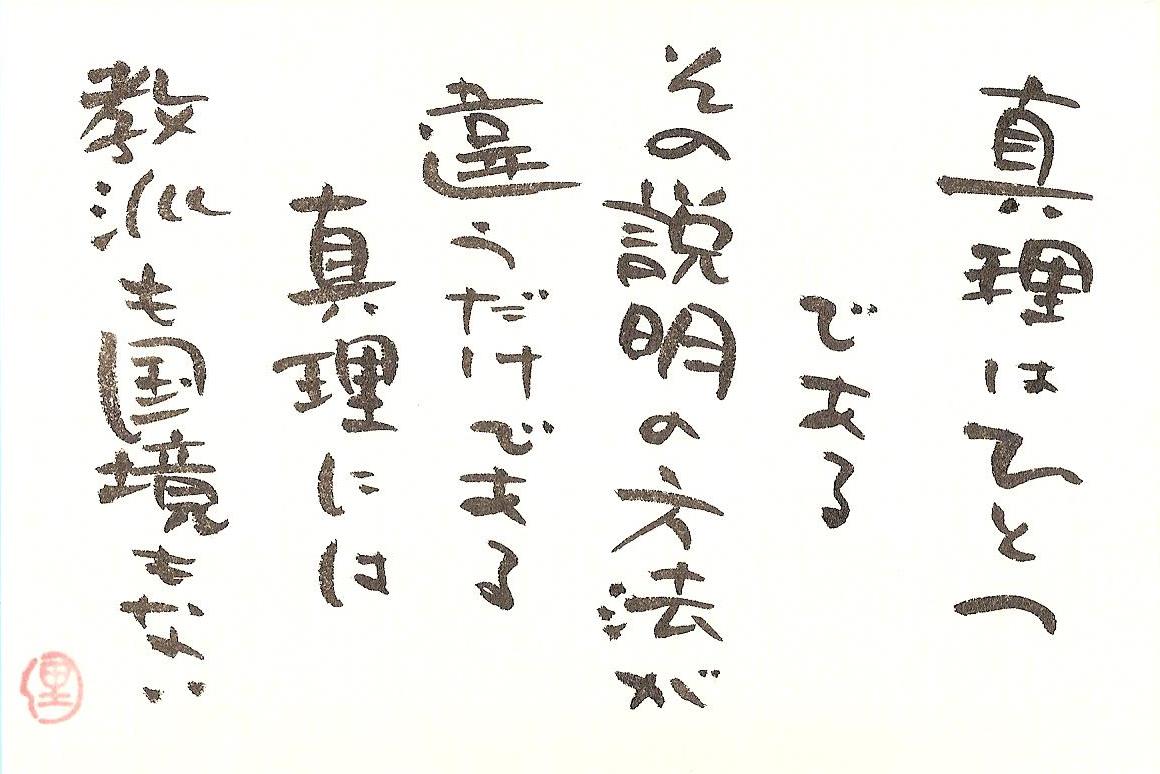 真理はひとつ
である
その説明の方法が
違うだけである
真理には
教派も国境もない